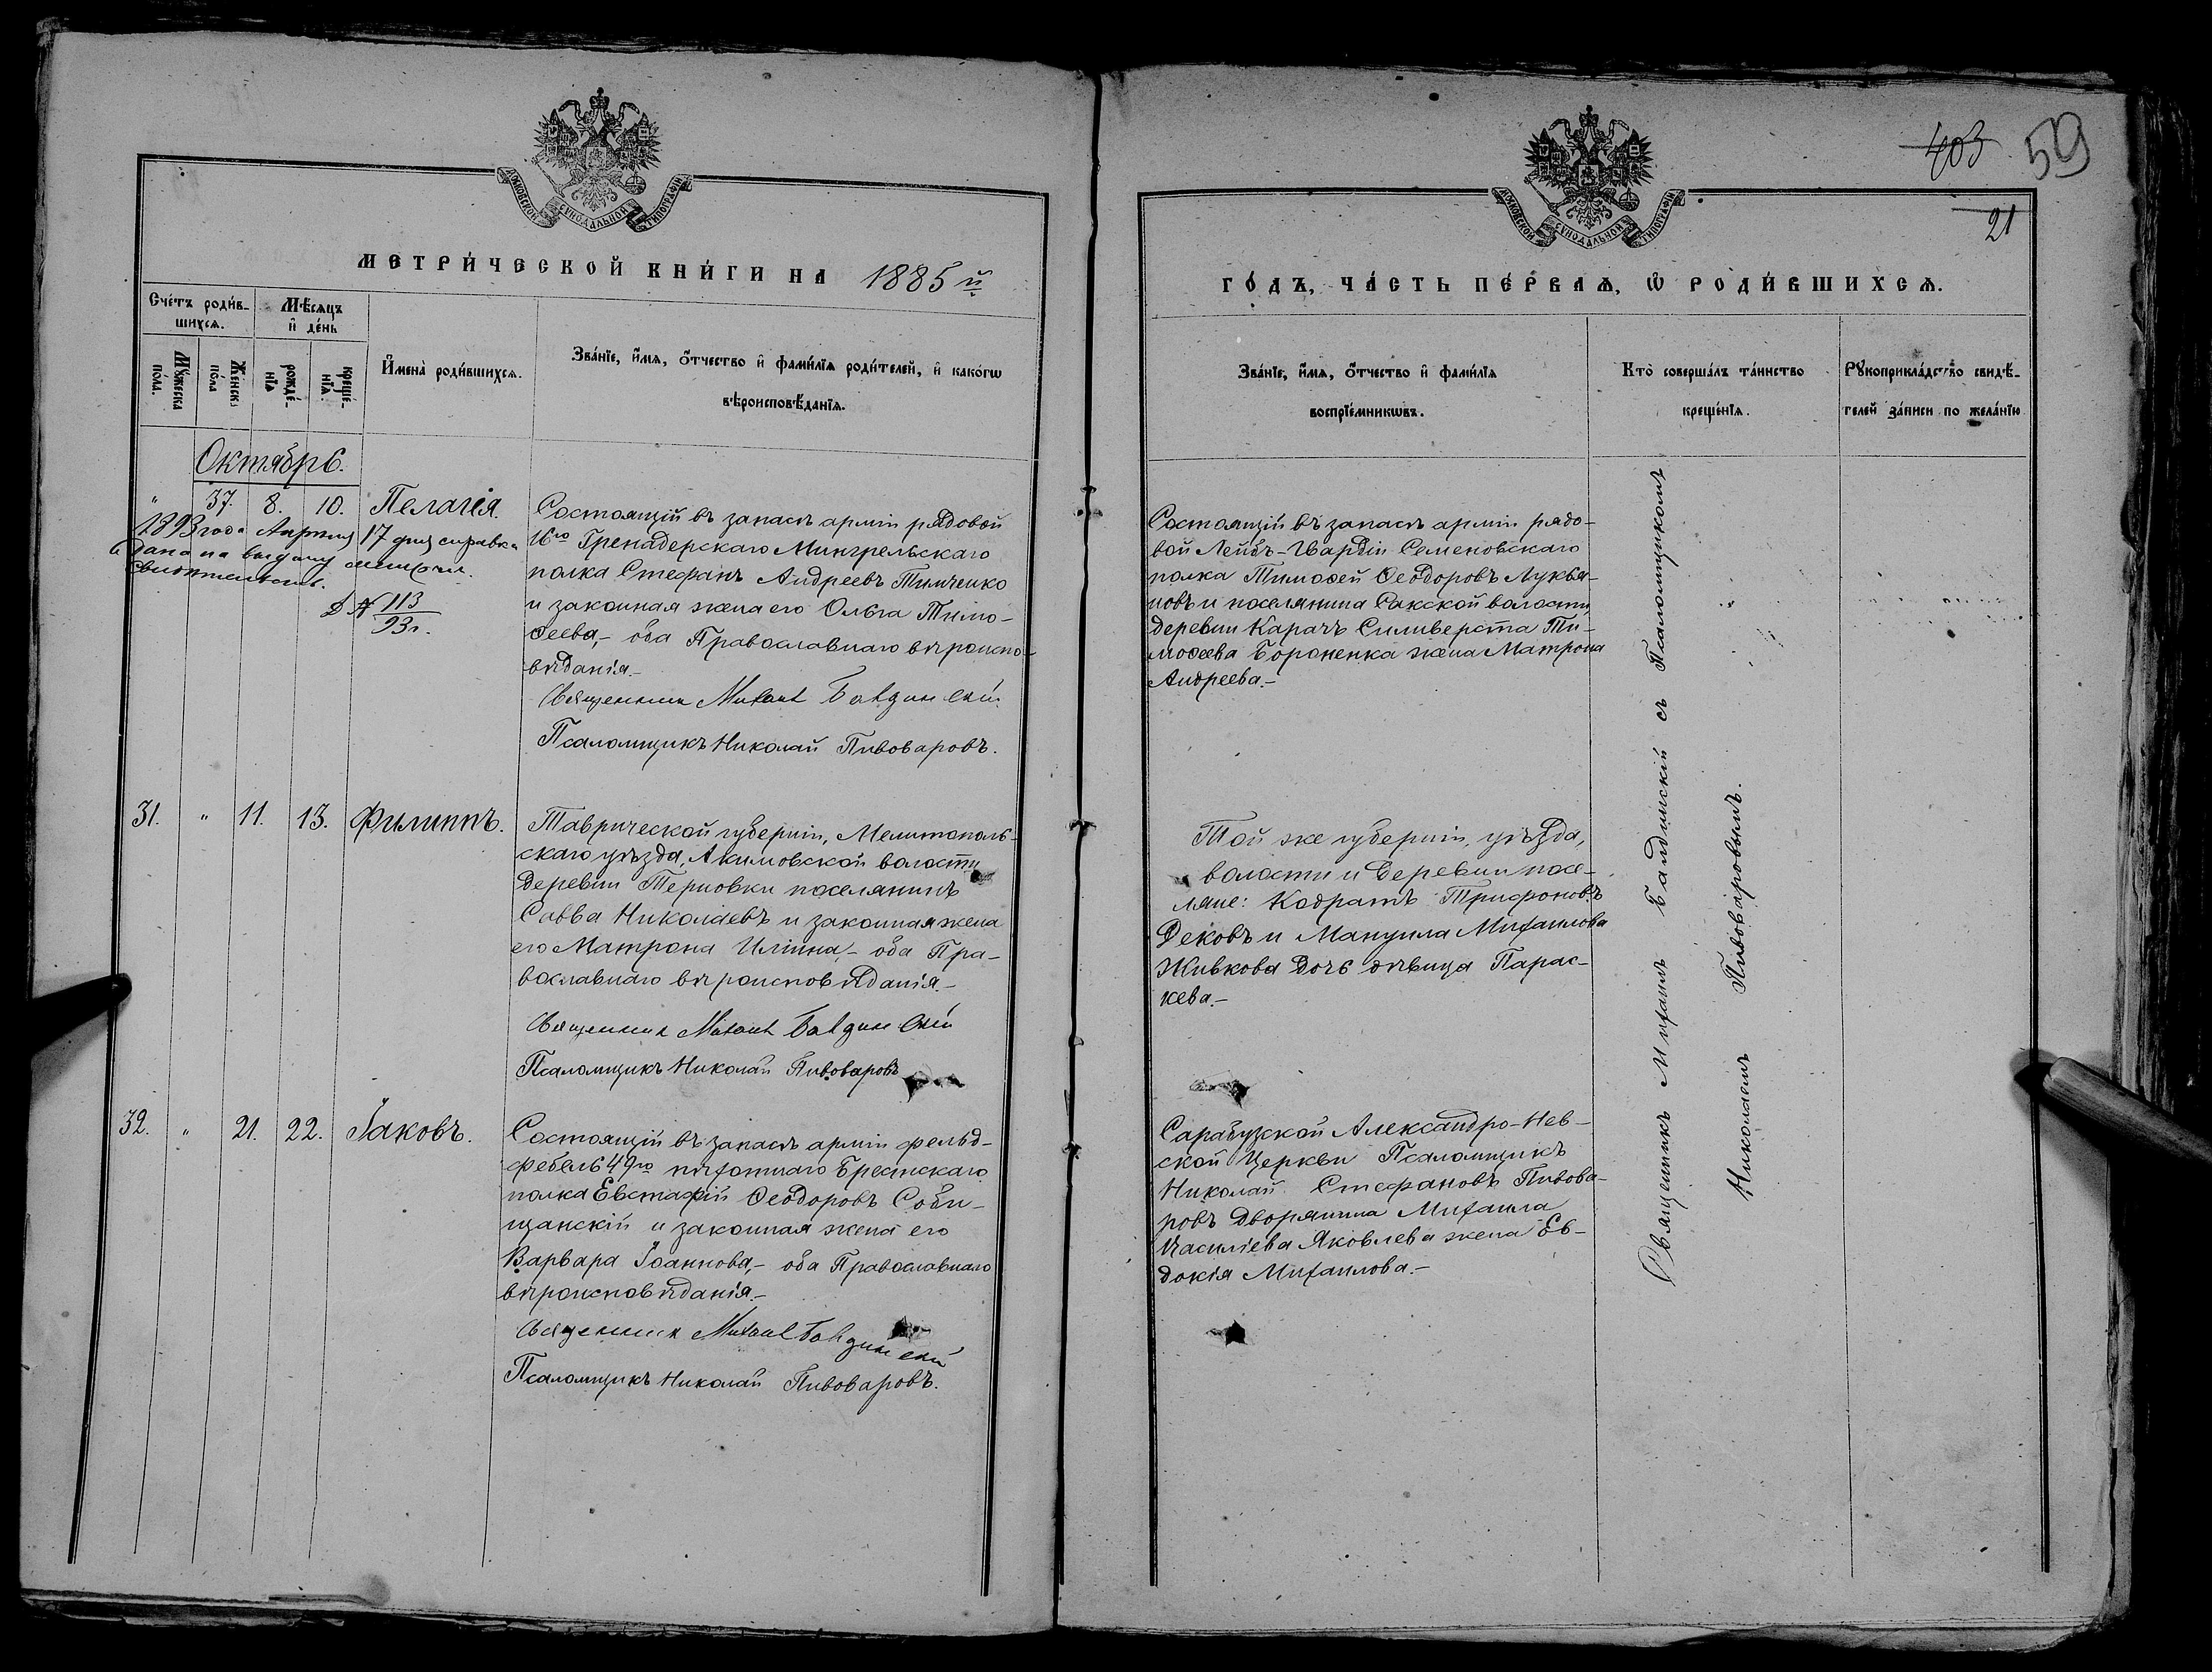 МОСКОВСКОЙ СѴНОДАЛЬНОЙ ТИПОГРАФІИ
МЕТРИ́ЧЕСКОЙ КНИ́ГИ НА 1885 й
Сче́тъ роди́в-
шихсѧ.
Мѣ́сѧцъ
и҆ де́нь
Мꙋ́жеска
по́ла.
Же́нска
по́ла
рожде́-
нїѧ
креще́-
нїѧ.
И҆мена̀ роди́вшихсѧ.
Зва́нїе, и҆́мѧ, ѻ҆́тчество и҆ фами́лїѧ роди́телей, и҆ како́гѡ
вѣроисповѣ́данїѧ.
Октябрь.
" 37. 8. 10. Пелагія.
1893 года Апрѣля 17 дня справка
дана на выдачу
свидѣтельств.
№ 113/93 г.
Состоящій въ запасѣ арміи рядовой
16го Гренадерскаго Мингрельскаго
полка Стефанъ Андреевъ Тимченко
и законная жена его Ольга Тимо-
ѳеева,- оба Православнаго вѣроиспо-
вѣданія.-
Священникъ Михаилъ Балдинскій
Псаломщикъ Николай Пивоваровъ.
31. " 11. 13. Филиппъ.
Таврической губерніи, Мелитополь-
скаго уѣзда, Акимовской волости
деревни Терновки поселянинъ
Савва Николаевъ и законная жена
его Матрона Иліина,- оба Пра-
вославнаго вѣроисповѣданія.-
Священникъ Михаилъ Балдинскій
Псаломщикъ Николай Пивоваровъ
32. " 21. 22. Іаковъ.
Состоящій въ запасѣ арміи фельд-
фебель 49го пѣхотнаго Брестскаго
полка Евстафій Ѳеодоровъ Соби-
щанскій и законная жена его
Варвара Іоаннова,- оба Православнаго
вѣроисповѣданія.-
Священникъ Михаилъ Балдинскій
Псаломщикъ Николай Пивоваровъ.
403 59
21
МОСКОВСКОЙ СѴНОДАЛЬНОЙ ТИПОГРАФІИ
ГО́ДЪ, ЧА́СТЬ ПЕ́РВАѦ, Ѡ҆ РОДИ́ВШИХСѦ.
Зва́нїе, и҆́мѧ, ѻ҆́тчество и҆ фами́лїѧ
воспрїе́мникѡвъ.
Кто̀ соверша́лъ та́инство
креще́нїѧ.
Рꙋкоприкла́дство свидѣ́-
телей за́писи по жела́нїю
Состоящій въ запасѣ арміи рядо-
вой Лейбъ-Гвардіи Семеновскаго
полка Тимоѳей Ѳеодоровъ Лукья-
новъ и поселянина Сакской волости,
деревни Карачъ Силиверста Ти-
моѳеева Бороненка жена Матрона
Андреева.-
Той же губерніи, уѣзда,
волости и деревни посе-
ляне: Кодратъ Трифоновъ
Дековъ и Мануила Михаилова
Живкова дочь дѣвица Парас-
кева.-
Сарабузской Александро-Нев-
ской Церкви Псаломщикъ
Николай Стефановъ Пивова-
ровъ дворянина Михаила
Василіева Яковлева жена Ев-
докія Михаилова.-
Священникъ Михаилъ Балдинскій съ Псаломщикомъ
Николаемъ Пивоваровымъ.